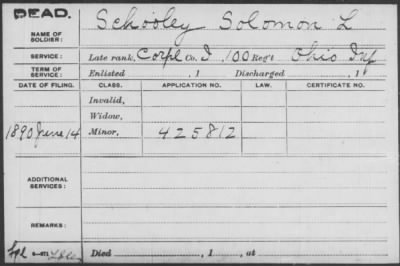 DEAD.
NAME OF SOLDIER: Schooley Solomon L
SERVICE: Late rank, Corpl Co. I, 100 Reg't Ohio Inf
TERM OF SERVICE: Enlisted , 1 Discharged , 1
DATE OF FILING. CLASS. APPLICATION NO. LAW. CERTIFICATE NO.
Invalid,
Widow,
1890 June 14 Minor, 425812
ADDITIONAL SERVICES:
REMARKS:
Died , 1 , at